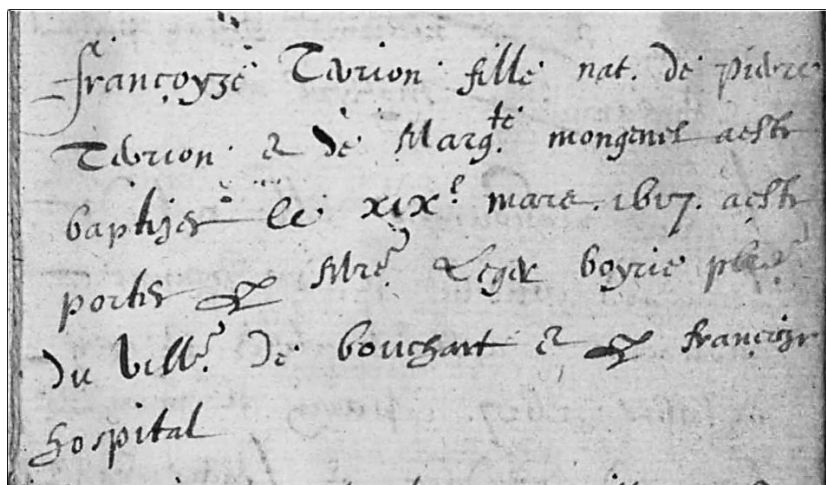 françoyze Tixrion fille nat. de pierre
Tixrion & de Marg.te mongenel aeste
baptizee le xix.e mars. 1617. aeste
portee p Mre. Leger boyrie
du vill.e de bouchart & p françoyse
hospital